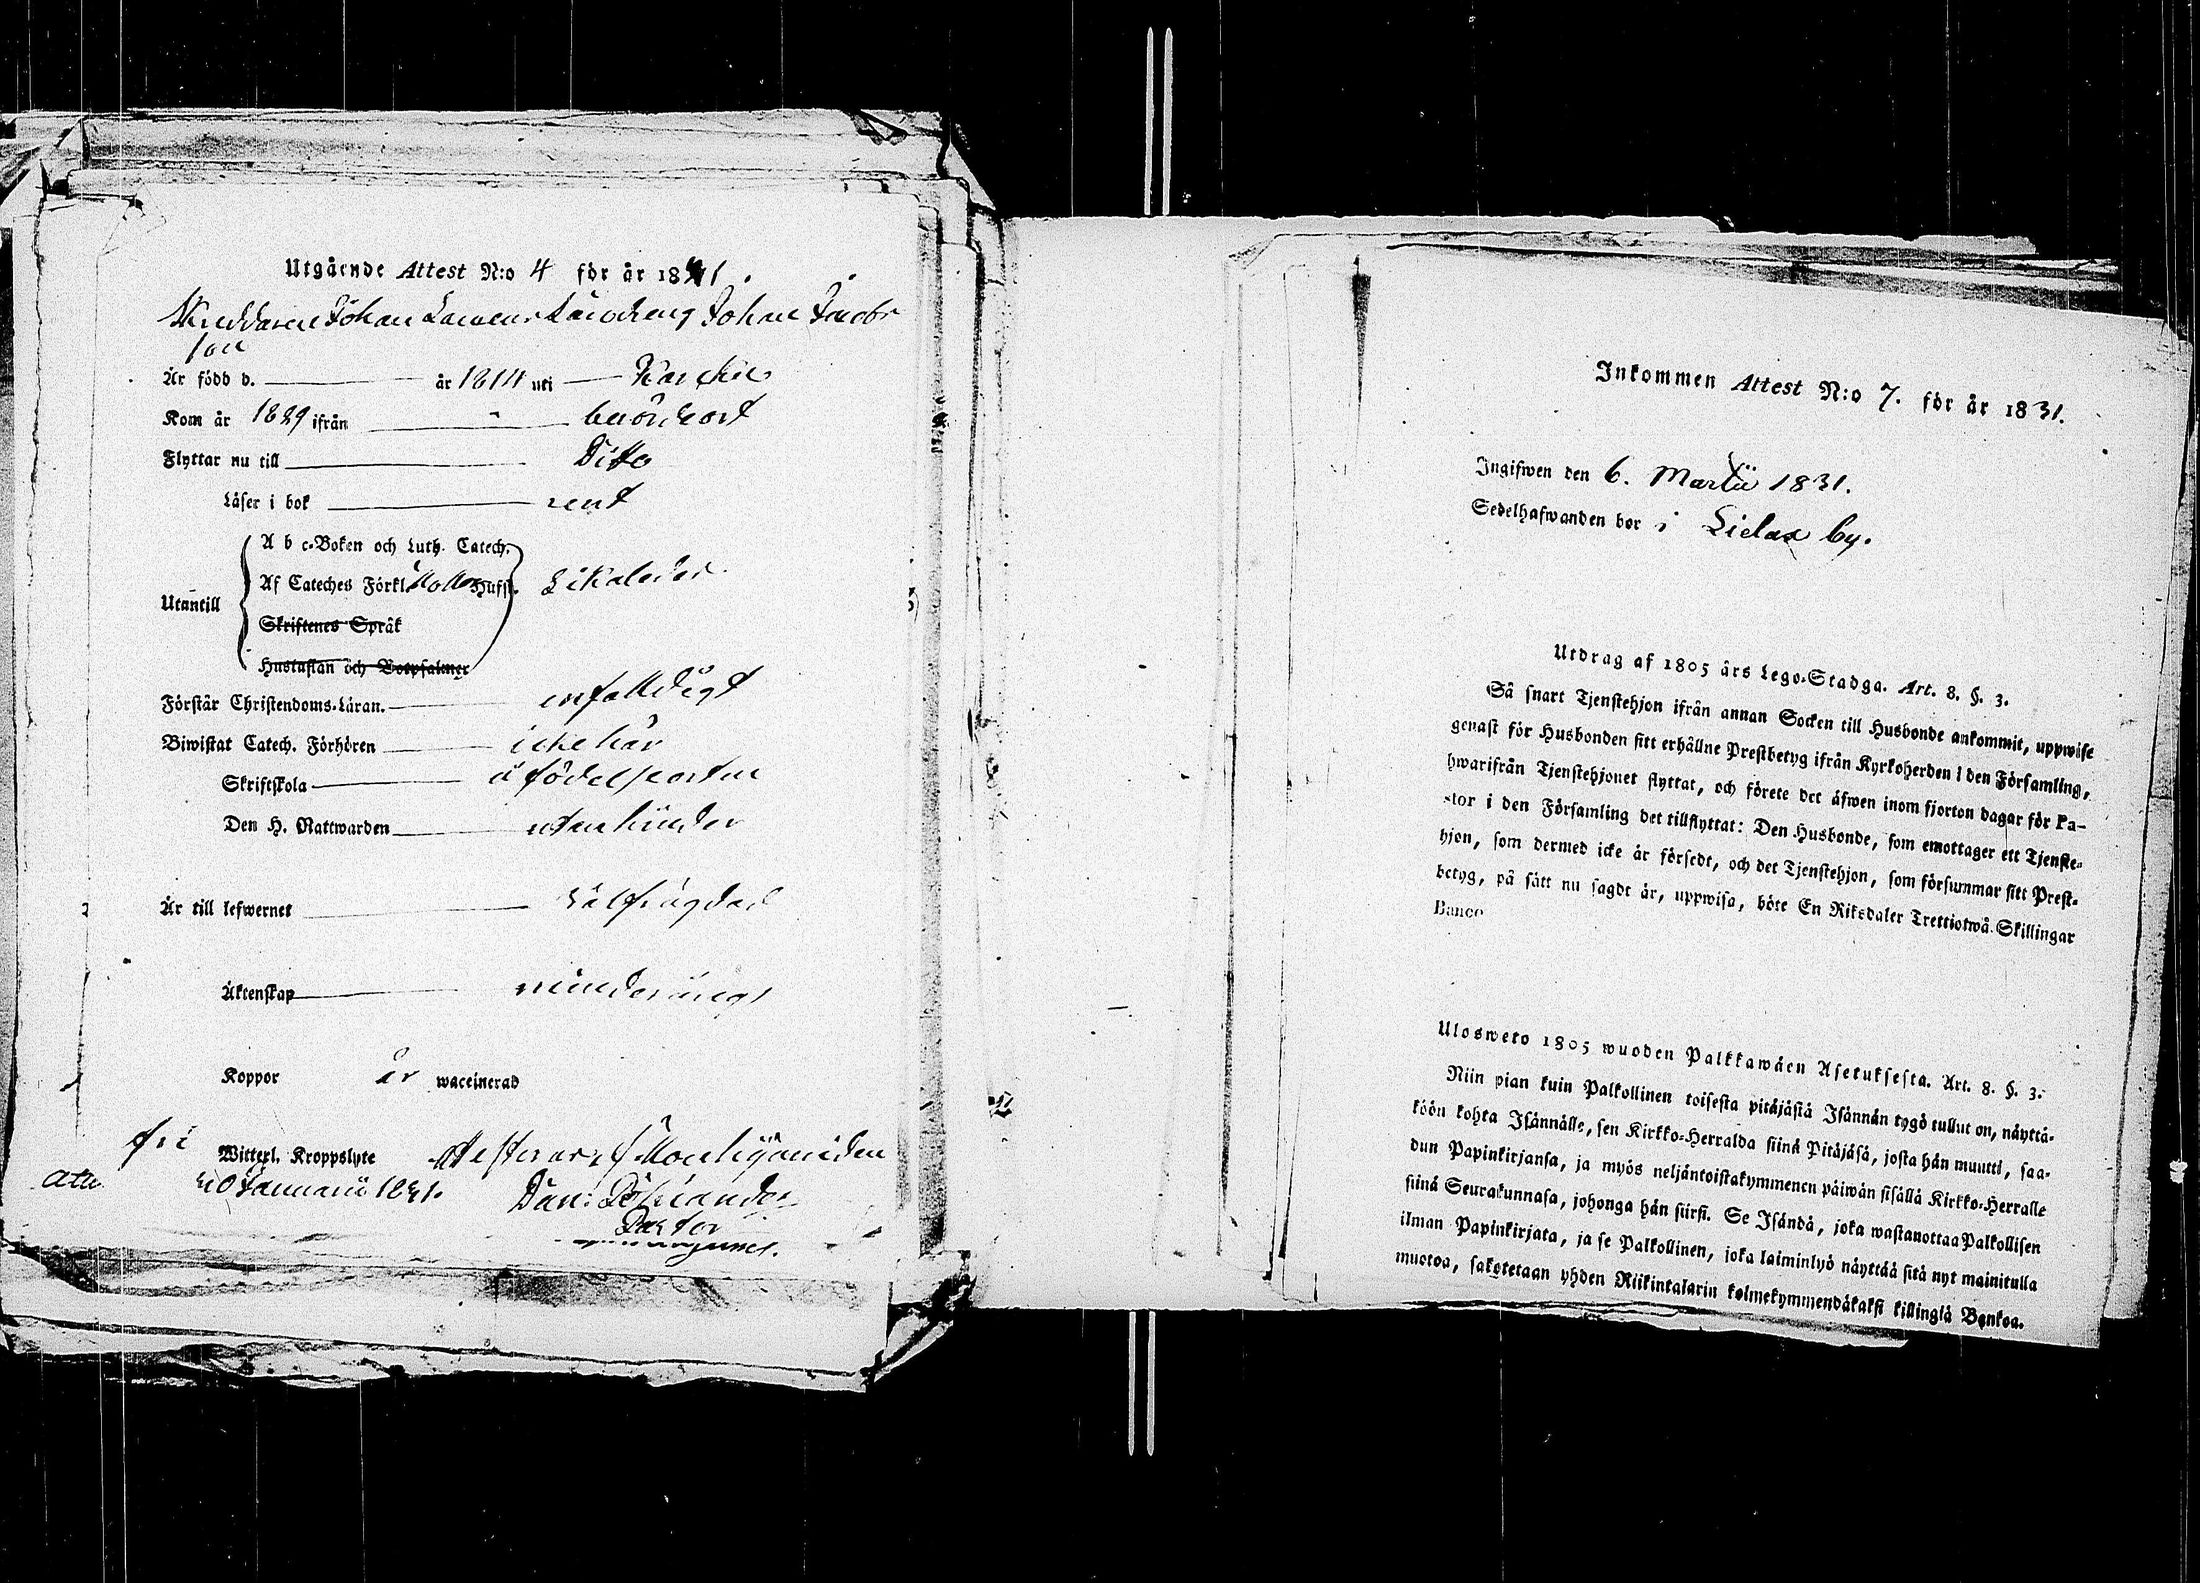 Utgående Attest N:o 4 för år 1831.
Skräddaren Johan Johan Jacobs
son
Är född d. år 1814 uti
Kom år 1829 ifrån
Flyttar nu till Ditto
Läser i bok rent
Utantill
A b c-Boken och Luth. Catech.
Af Cateches Förkl. Hufst. Likaledes
Skriftenes Språk
Hustaflan och Botpsalmer
Förstår Christendoms-Läran. enfalldigt
Biwistat Catech. Förhören icke här
Skriftskola å födelseorten
Den H. Nattwarden utan hinder
Är till lefwernet wälfrägdad
Äktenskap minderårig
Koppor är waccinerad
fri Witterl. Kroppslyte attesteras f
Januarii 1831. Dan:
Pastor
Inkommen Attest N:o 7. för år 1831.
Ingifwen den 6. Martii 1831.
Sedelhafwanden bor i Lielax by.
Utdrag af 1805 års Lego-Stadga. Art. 8. §. 3.
Så snart Tjenstehjon ifrån annan Socken till Husbonde ankommit, uppwise
genast för Husbonden sitt erhållne Prestbetyg ifrån Kyrkoherden i den Församling,
hwarifrån Tjenstehjonet flyttat, och förete det äfwen inom fjorton dagar för Pa-
stor i den Församling det tillflyttat: Den Husbonde, som emottager ett Tjenste-
hjon, som dermed icke är försedt, och det Tjenstehjon, som försummar sitt Prest-
betyg, på sätt nu sagdt är, uppwisa, böte En Riksdaler Trettiotwå Skillingar
Banco
Ulosweto 1805 wuoden Palkkawäen Asetuksesta. Art. 8. §. 3.
Niin pian kuin Palkollinen toisesta pitäjästä Isännän tygö tullut on, näyttä-
köön kohta Isännälle, sen Kirkko-Herralda siinä Pitäjäsä, josta hän muutti, saa-
dun Papinkirjansa, ja myös neljäntoistakymmenen päiwän sisällä Kirkko-Herralle
siinä Seurakunnasa, johonga hän siirsi. Se Isändä, joka wastanottaa Palkollisen
ilman Papinkirjata, ja se Palkollinen, joka laiminlyö näyttää sitä nyt mainitulla
muotoa, sakotetaan yhden Riikintalarin kolmekymmendäkaksi killingiä Bankoa.